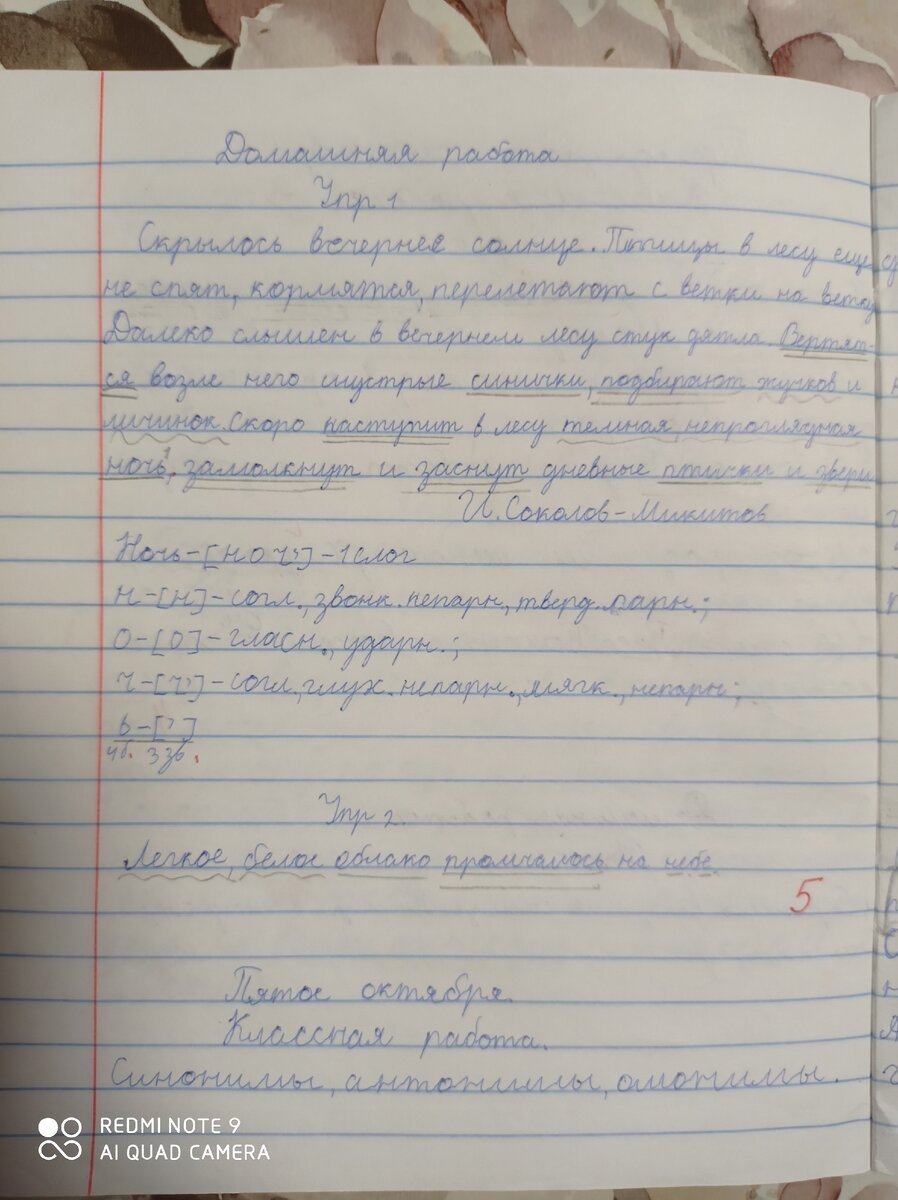 Домашняя работа
Упр 1
Скрылось вечернее солнце. Птицы в лесу еще
не спят, кормятся, перелетают с ветки на ветку
Далеко слышен в вечернем лесу стук дятла. Вертят-
ся возле него шустрые синички, подбирают жучков и
личинок. Скоро наступит в лесу темная, непроглядная
ночь¹, замолкнут и заснут дневные птички и звери
И. Соколов-Микитов
Ночь-[н о ч']-1 слог
н-[н]-согл., звонк. непарн, тверд. парн.;
о-[о]-гласн., ударн.;
ч-[ч']-согл, глух. непарн., мягк., непарн;
ь-[ ]
4б. 3 зв.
Упр 2.
Легкое, белое облако промчалось на небе.
5
Пятое октября.
Классная работа.
Синонимы, антонимы, омонимы.
REDMI NOTE 9
AI QUAD CAMERA